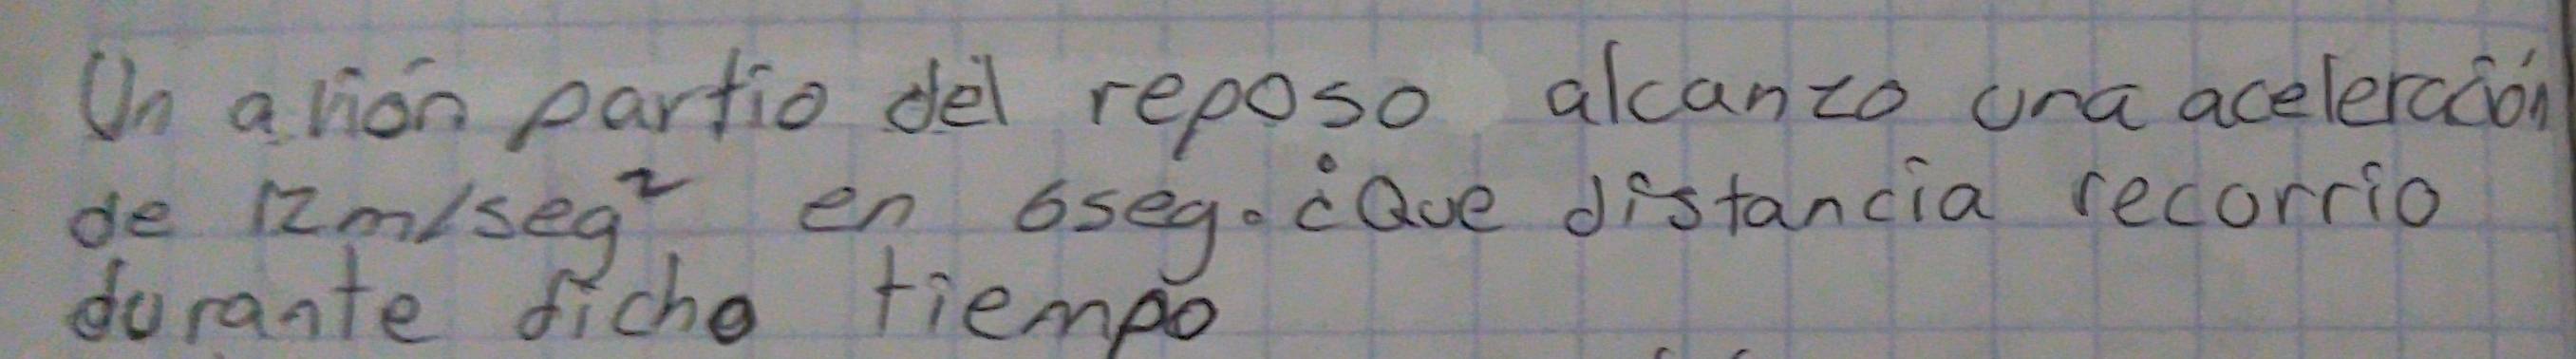 Un avión partio del reposo alcanzo una aceleración
de 12m/seg² en 6seg. ¿Que distancia recorrio
durante dicho tiempo